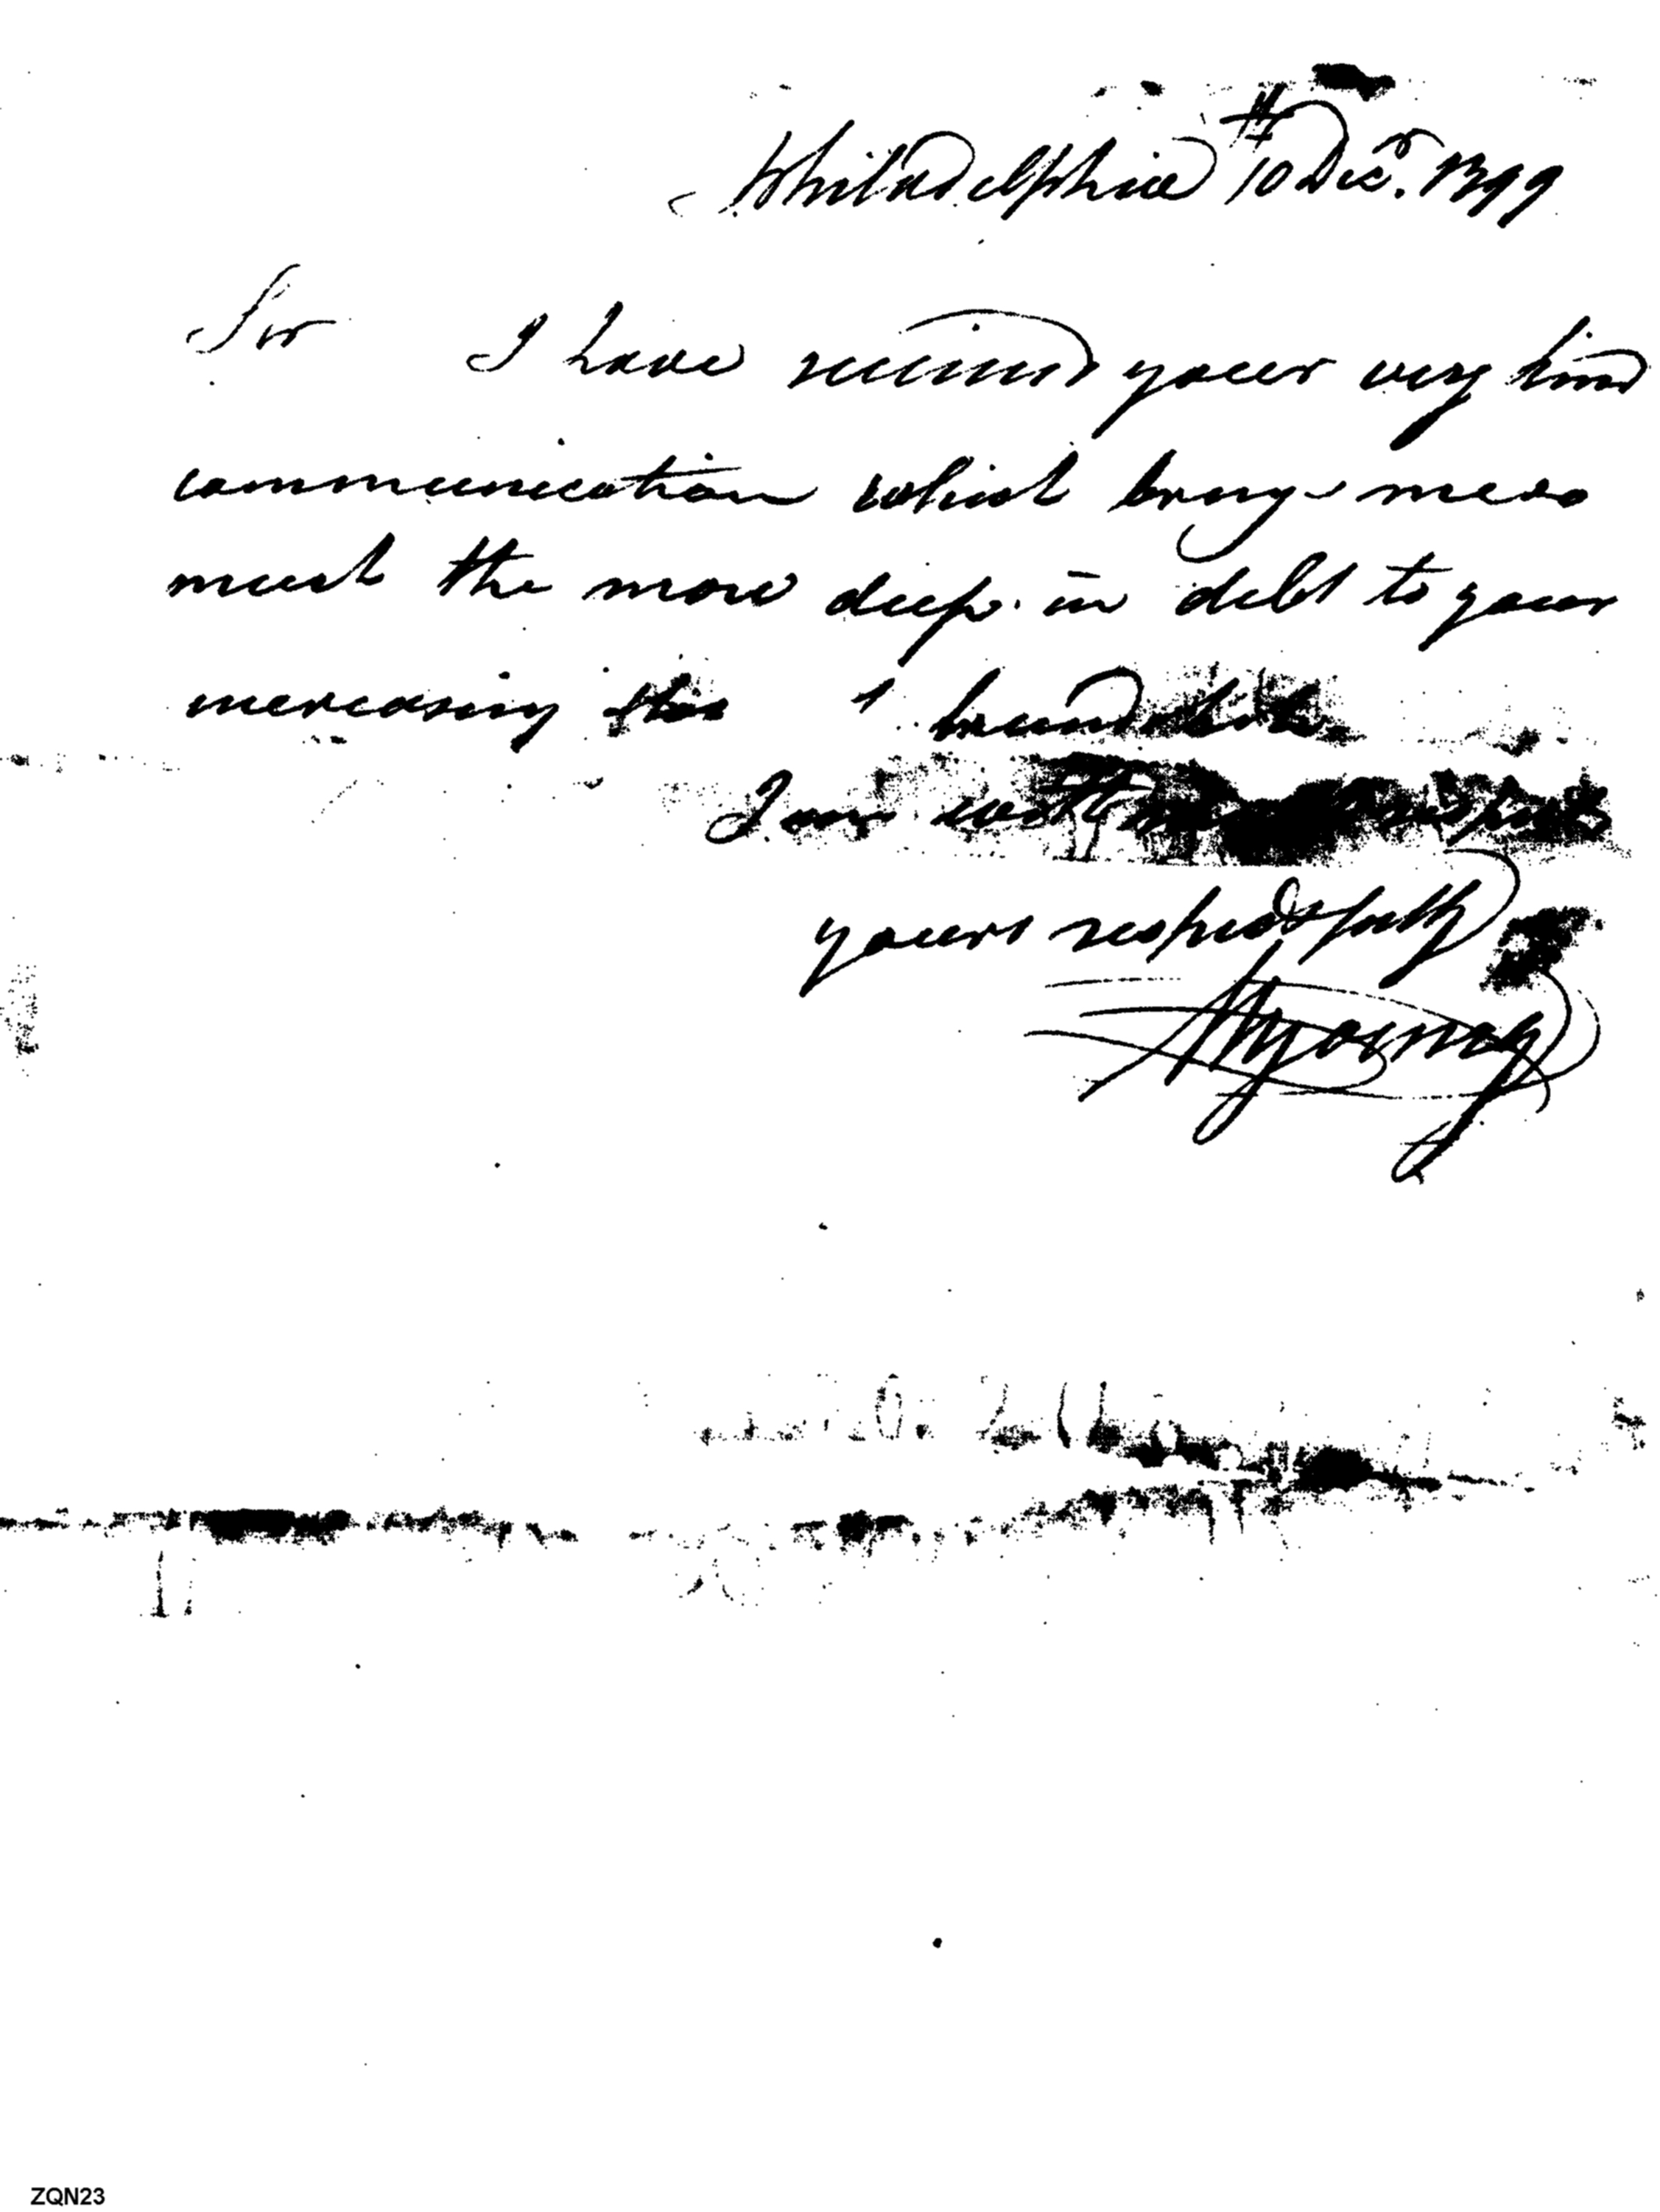 Philadelphia 10th Decr. 1799
Sir I have received your very kind
communication which brings me so
much the more deep in debt to your
increasing this
I am with respects
yours respectfully